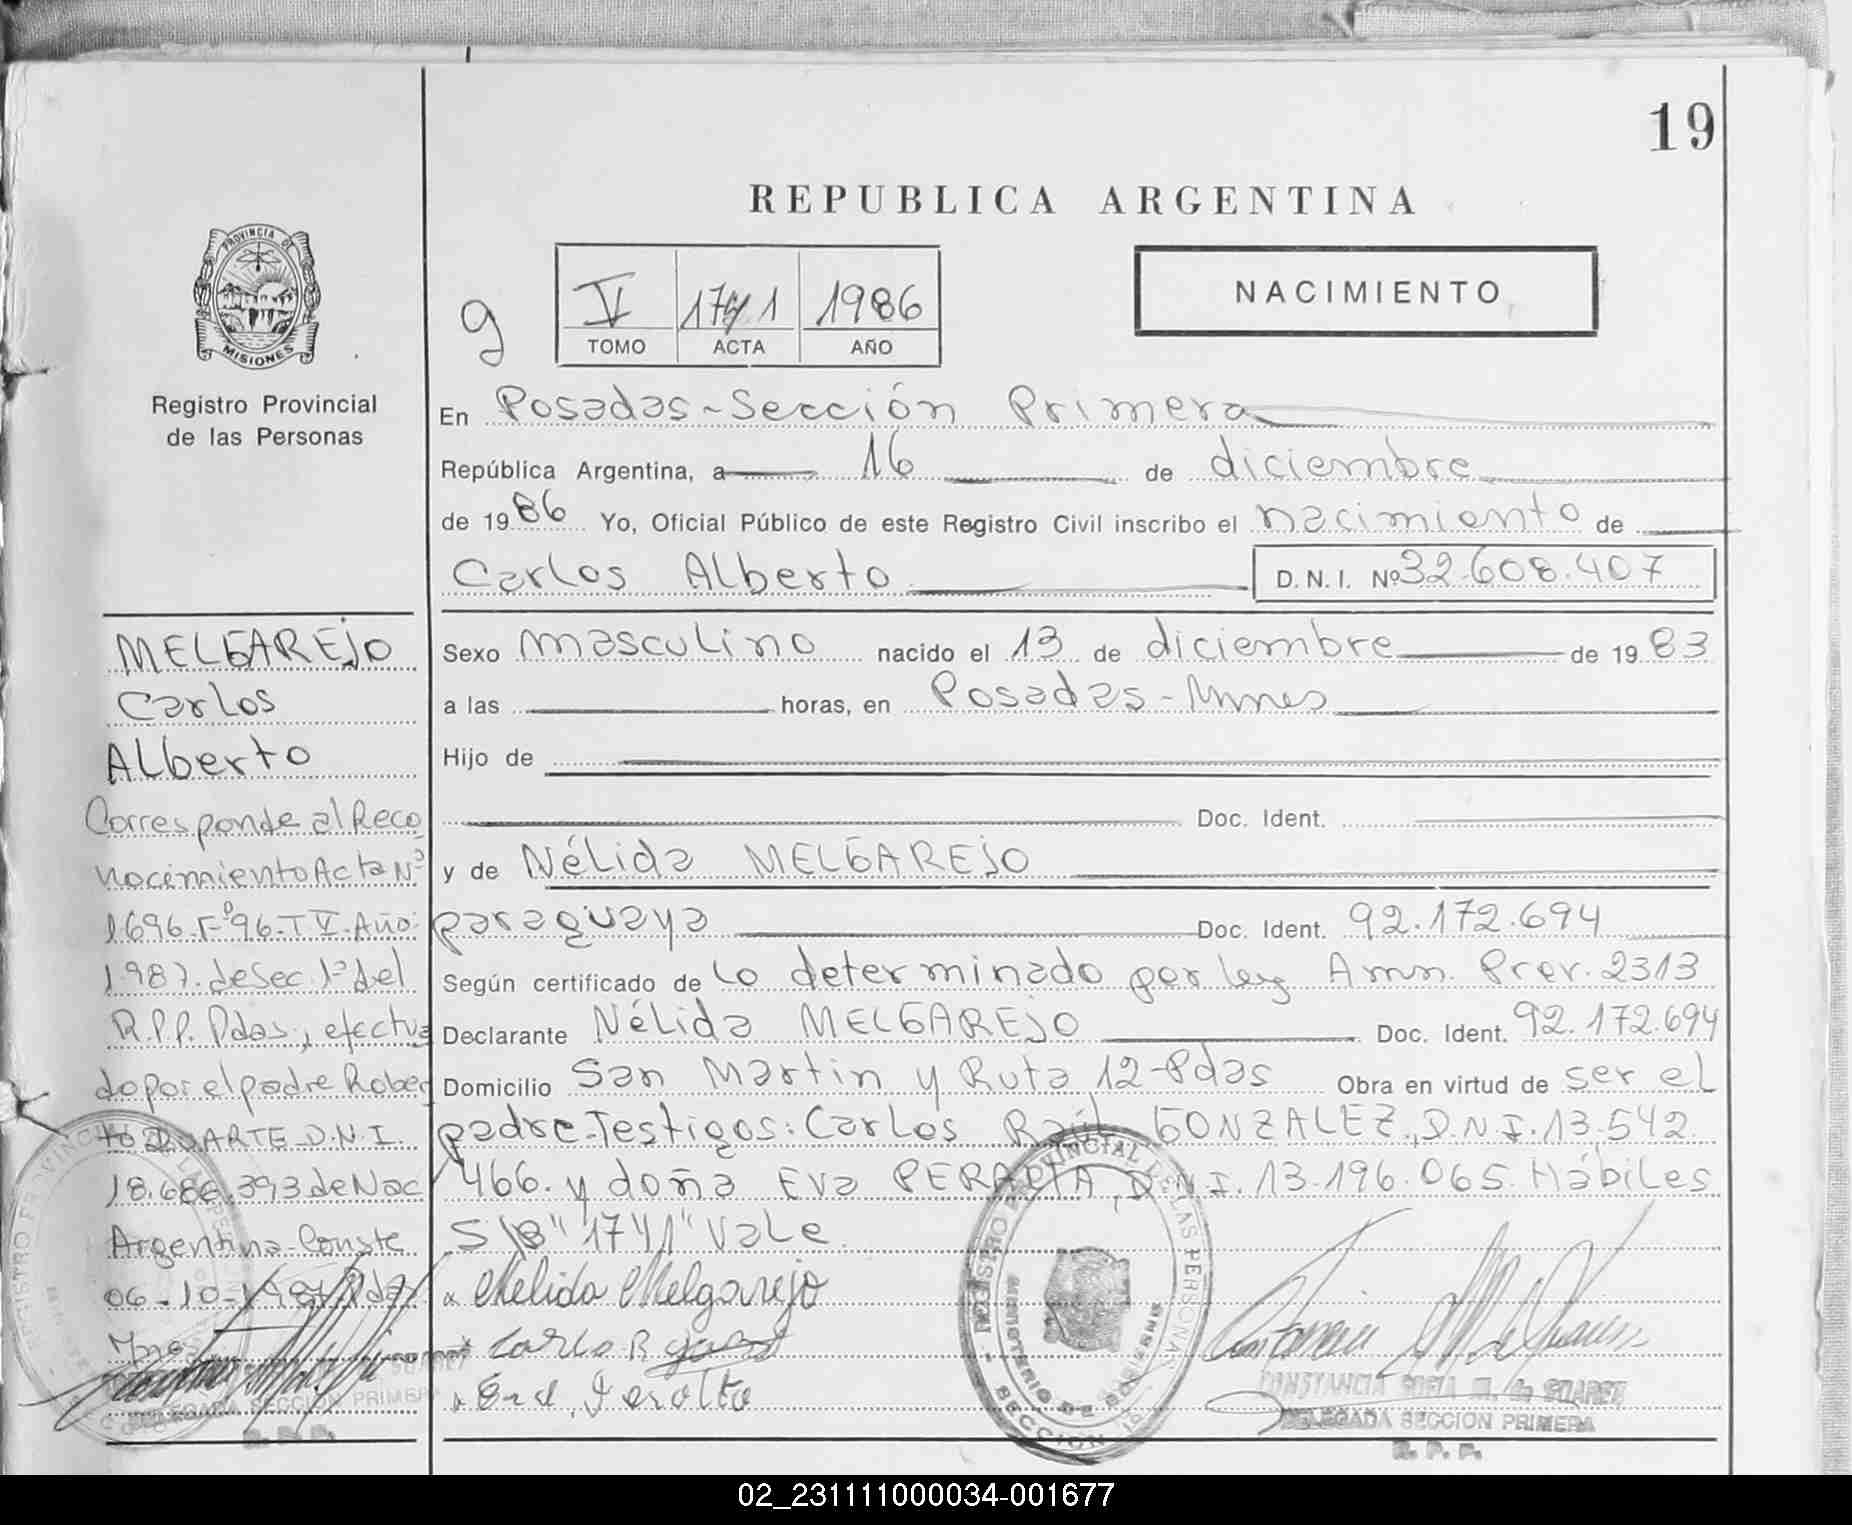 19
REPUBLICA ARGENTINA
PROVINCIA DE
MISIONES
Registro Provincial
de las Personas
g
V 1741 1986
TOMO ACTA AÑO
NACIMIENTO
En Posadas-Sección Primera
República Argentina, a 16 de diciembre
de 1986 Yo, Oficial Público de este Registro Civil inscribo el nacimiento de
Carlos Alberto D.N.I. Nº 32.608.407
Sexo masculino nacido el 13 de diciembre de 1983
a las horas, en Posadas-Mnes
Hijo de
Doc. Ident.
y de Nélida MELGAREJO
paraguaya Doc. Ident. 92.172.694
Según certificado de lo determinado por ley Amn. Prov. 2313
Declarante Nélida MELGAREJO Doc. Ident. 92.172.694
Domicilio San Martin y Ruta 12-Pdas Obra en virtud de ser el
padre-Testigos: Carlos Raúl GONZALEZ, D.N.I. 13.542.
466. y doña Eva PERALTA, D.N.I. 13.196.065. Hábiles
S/B "1741" Vale
Nelida Melgarejo
Carlos R
Eva Peralta
MELGAREJO
Carlos
Alberto
Corresponde al Reco
nocimiento Acta Nº
1696-Fº96-T V-Año:
1987. de Sec. 1ª del
R.P.P. Pdas., efectua
do por el padre Rober
to DUARTE-D.N.I.
18.686.393 de Nac
Argentina-Conste
06-10-1987 Pdas
Mnes
DELEGADA SECCION PRIMERA
R. P. P.
REGISTRO PROVINCIAL DE LAS PERSONAS
MINISTERIO DE GOBIERNO
SECCION 1ª
CONSTANCIA SOFIA M. de SUAREZ
DELEGADA SECCION PRIMERA
R. P. P.
02_231111000034-001677